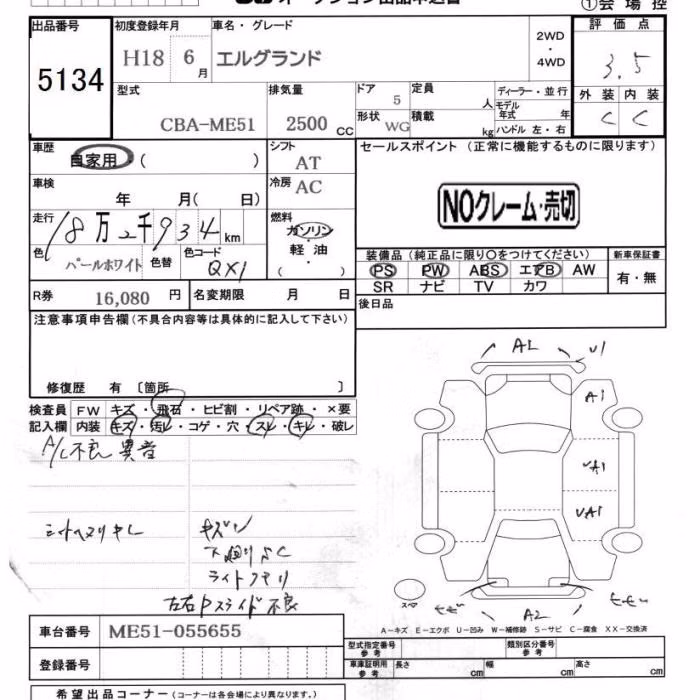 ①会場控
出品番号 初度登録年月 車名・グレード 2WD・4WD 評価点
5134 H18 6月 エルグランド 3.5
型式 排気量 ドア 定員 ディーラー・並行 外装 内装
CBA-ME51 2500 CC 5 人 モデル年式 年 C C
形状 WG 積載 kg ハンドル 左・右
車歴 シフト セールスポイント (正常に機能するものに限ります)
自家用・( ) AT
車検 冷房 AC
年 月( 日) NOクレーム・売切
走行 18万2千934km 燃料 ガソリン・軽油・( )
色 パールホワイト 色替 色コード QX1
装備品(純正品に限り〇をつけてください) 新車保証書
PS PW ABS エアB AW 有・無
SR ナビ TV カワ
R券 16,080 円 名変期限 月 日 後日品
注意事項申告欄(不具合内容等は具体的に記入して下さい)
修復歴 有 〔箇所 〕
検査員 FW キズ・飛石・ヒビ割・リペア跡・×要
記入欄 内装 キズ・汚レ・コゲ・穴・スレ・キレ・破レ
A/C不良 異音
キズ
下廻りSC
左右Pスライド不良
A2 U1
A1
UA1
UA1
A2
A-キズ E-エクボ U-凹み W-補修跡 S-サビ C-腐食 XX-交換済
車台番号 ME51-055655
登録番号
型式指定番号 参考 類別区分番号 参考
車庫証明用 参考 長さ cm 幅 cm 高さ cm
希望出品コーナー(コーナーは各会場により異なります。)